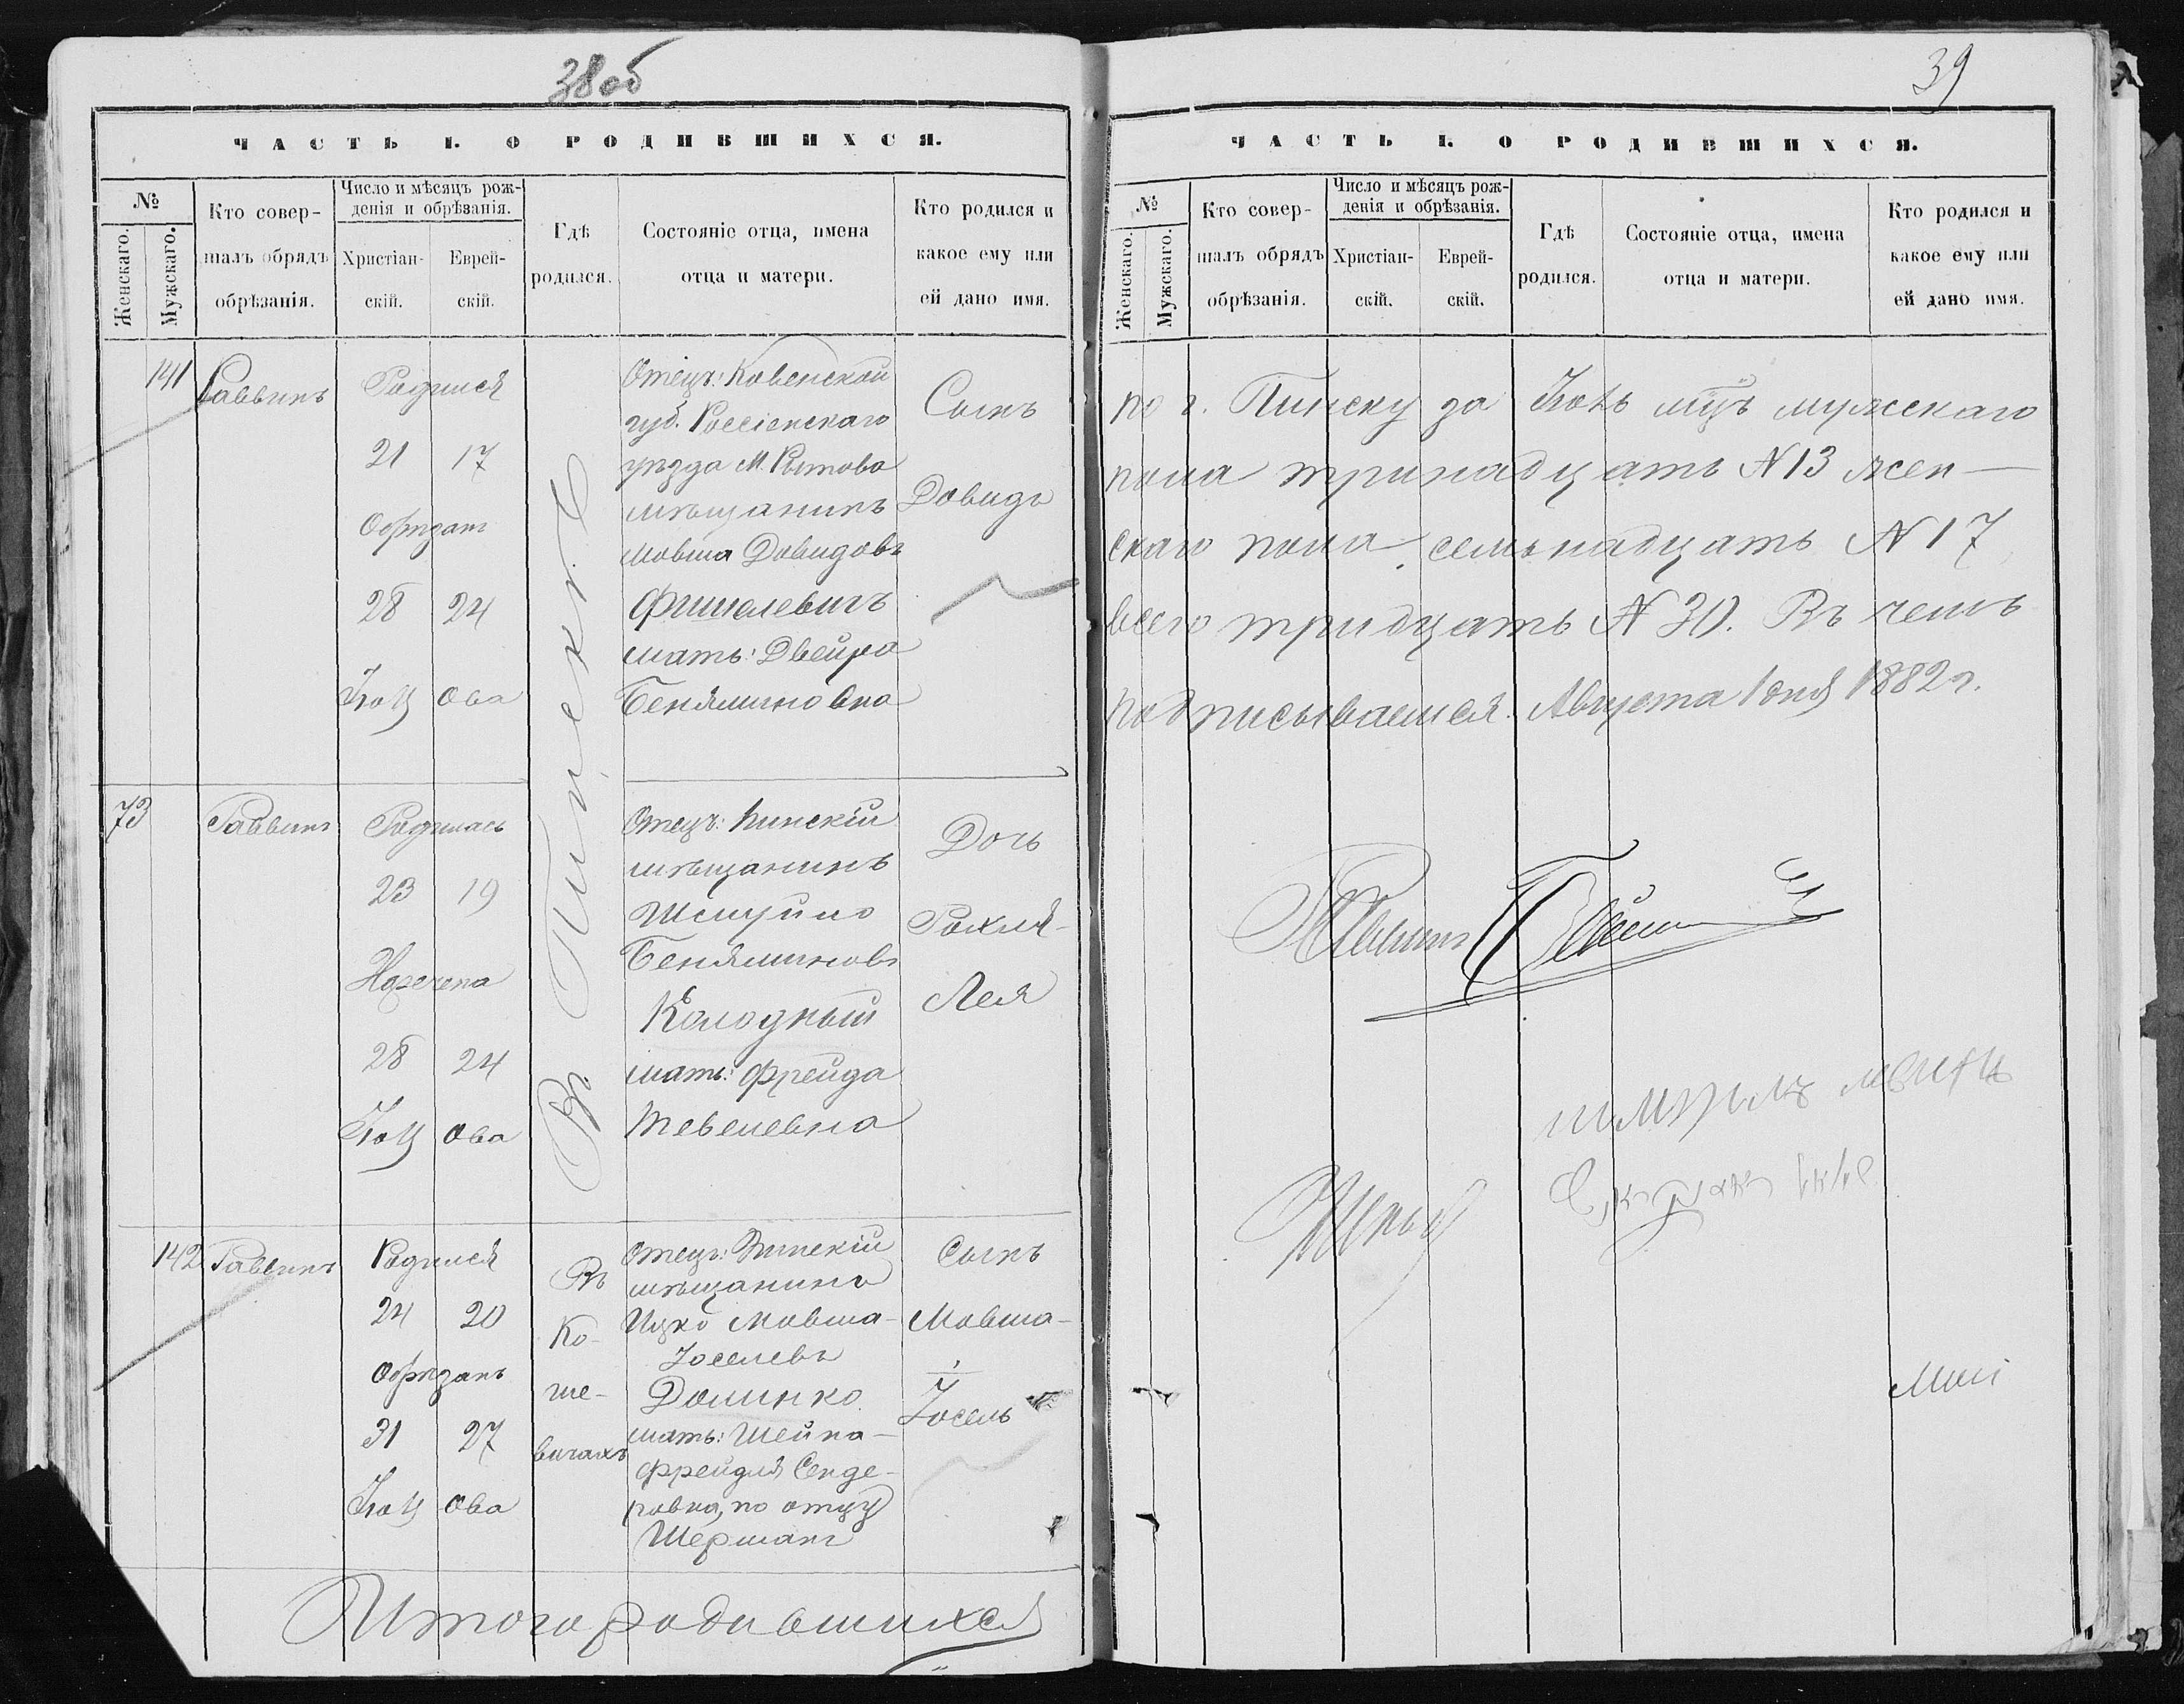 38об
ЧАСТЬ I. О РОДИВШИХСЯ.
№
Женскаго.
Мужскаго.
Кто совер-
шалъ обрядъ
обрѣзанія.
Число и мѣсяцъ рож-
денія и обрѣзанія.
Христіан-
скій.
Еврей-
скій.
Гдѣ
родился.
Состояніе отца, имена
отца и матери.
Кто родился и
какое ему или
ей дано имя.
141
Раввинъ
Родился
21 17
Обрѣзанъ
28 24
Іюль Ова
Въ Пинскѣ
Отецъ: Ковенской
губ. Россіенскаго
уѣзда М. Рытова
мѣщанинъ
Мовша Довидовъ
Фишелевичъ
мать: Двейра
Беняминовна
Сынъ
Довидъ
73
Раввинъ
Родилась
23 19
Наречена
28 24
Іюль Ова
Отецъ: Пинскій
мѣщанинъ
Шмуйло
Беняминовъ
Колодный
мать: Фрейда
Тевелевна
Дочь
Рахля-
Лея
142
Раввинъ
Родился
24 20
Обрѣзанъ
31 27
Іюль Ова
Въ
Ко-
ше-
вичахъ
Отецъ: Пинскій
мѣщанинъ
Ицко Мовша-
Іоселевъ
Долинко
мать: Шейна-
Фрейдля Сенде-
ровна, по отцу
Шерманъ
Сынъ
Мовша-
Іосель
Итого родившихся
39
ЧАСТЬ I. О РОДИВШИХСЯ.
№
Женскаго.
Мужскаго.
Кто совер-
шалъ обрядъ
обрѣзанія.
Число и мѣсяцъ рож-
денія и обрѣзанія.
Христіан-
скій.
Еврей-
скій.
Гдѣ
родился.
Состояніе отца, имена
отца и матери.
Кто родился и
какое ему или
ей дано имя.
по г. Пинску за Іюль мцъ мужскаго
пола тринадцать N 13 жен-
скаго пола семьнадцать N 17
всего тридцать N 30. Въ чемъ
подписываемся. Августа 1 дня 1882 г.
Раввинъ